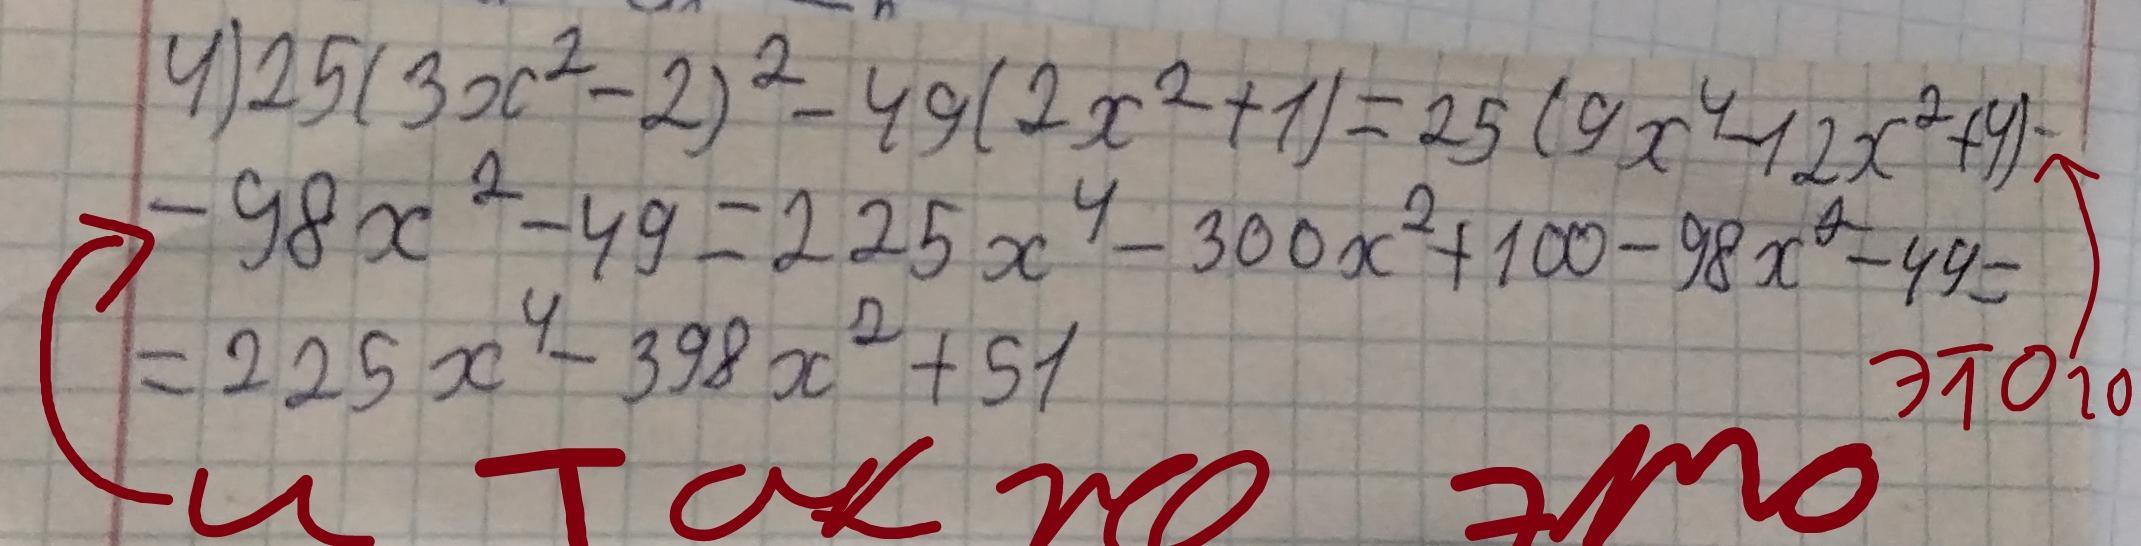 4) 25(3x²-2)²-49(2x²+1)=25(9x⁴-12x²+4)-
-98x²-49=225x⁴-300x²+100-98x²-49=
=225x⁴-398x²+51
этого
и также это